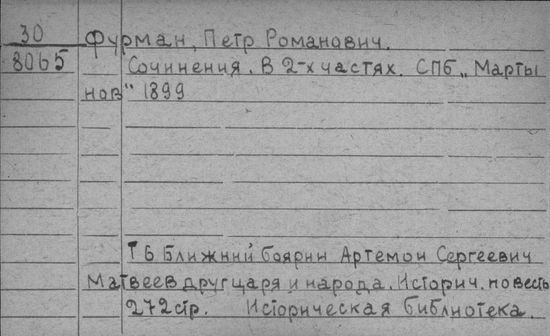 30 Фурман, Петр Романович.
8065 Сочинения. В 2-х частях. СПб „Марты
нов" 1899
т 6 Ближний боярин Артемон Сергеевич
Матвеев друг царя и народа. Историч. повесть
272 стр. Историческая библиотека.